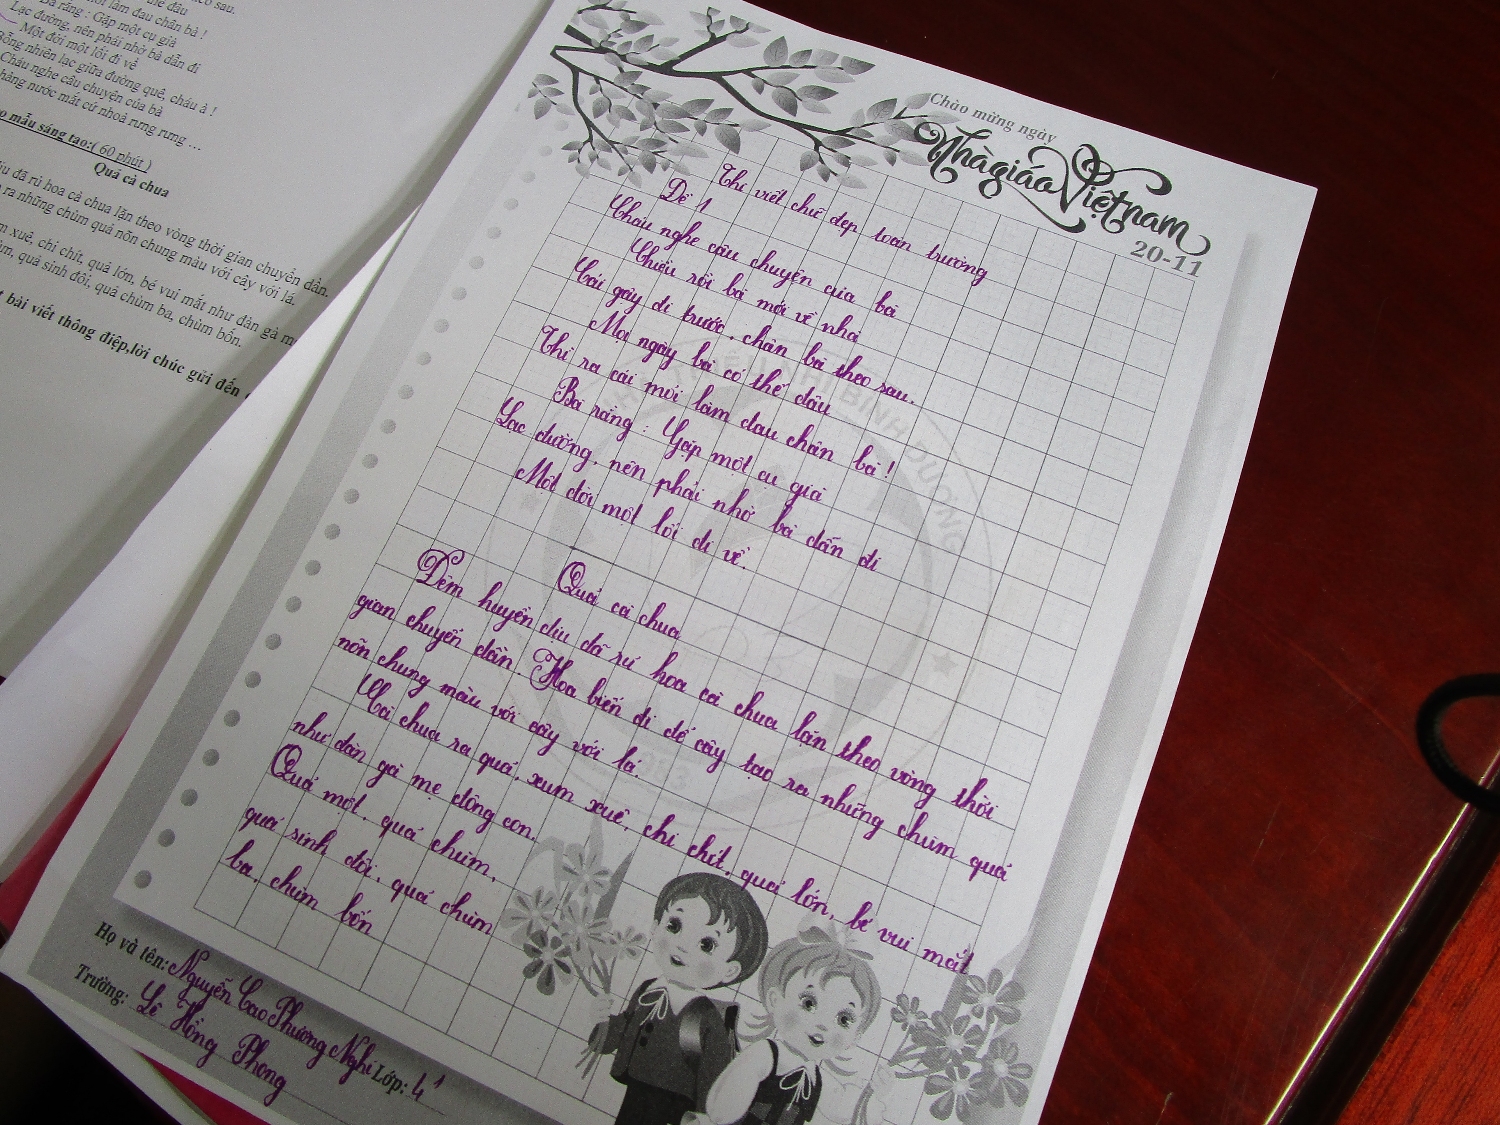 theo sau.
thế đâu
mỏi làm đau chân bà !
Bà rằng : Gặp một cụ già
Lạc đường, nên phải nhờ bà dẫn đi
Một đời một lối đi về
Bỗng nhiên lạc giữa đường quê, cháu à !
Cháu nghe câu chuyện của bà
hàng nước mắt cứ nhoà rưng rưng ...
mẫu sáng tạo:( 60 phút )
Quả cà chua
đã rủ hoa cà chua lặn theo vòng thời gian chuyển dần.
ra những chùm quả nõn chung màu với cây với lá.
xuê, chi chít, quả lớn, bé vui mắt như đàn gà
quả sinh đôi, quả chùm ba, chùm bốn.
bài viết thông điệp,lời chúc gửi đến
Chào mừng ngày
Nhà giáo Việt nam
20-11
Thi viết chữ đẹp toàn trường
Đề 1
Cháu nghe câu chuyện của bà
Chiều rồi bà mới về nhà
Cái gậy đi trước, chân bà theo sau.
Mọi ngày bà có thế đâu
Thì ra cái mỏi làm đau chân bà !
Bà rằng : Gặp một cụ già
Lạc đường, nên phải nhờ bà dẫn đi
Một đời một lối đi về.
Quả cà chua
Đêm huyền dịu đã rủ hoa cà chua lặn theo vòng thời
gian chuyển dần. Hoa biến đi để cây tạo ra những chùm quả
nõn chung màu với cây với lá.
Cà chua ra quả, xum xuê, chi chít, quả lớn, bé vui mắt
như đàn gà mẹ đông con.
Quả một, quả chùm,
quả sinh đôi, quả chùm
ba, chùm bốn
Họ và tên: Nguyễn Cao Phương Nghi Lớp: 4¹
Trường: Lê Hồng Phong